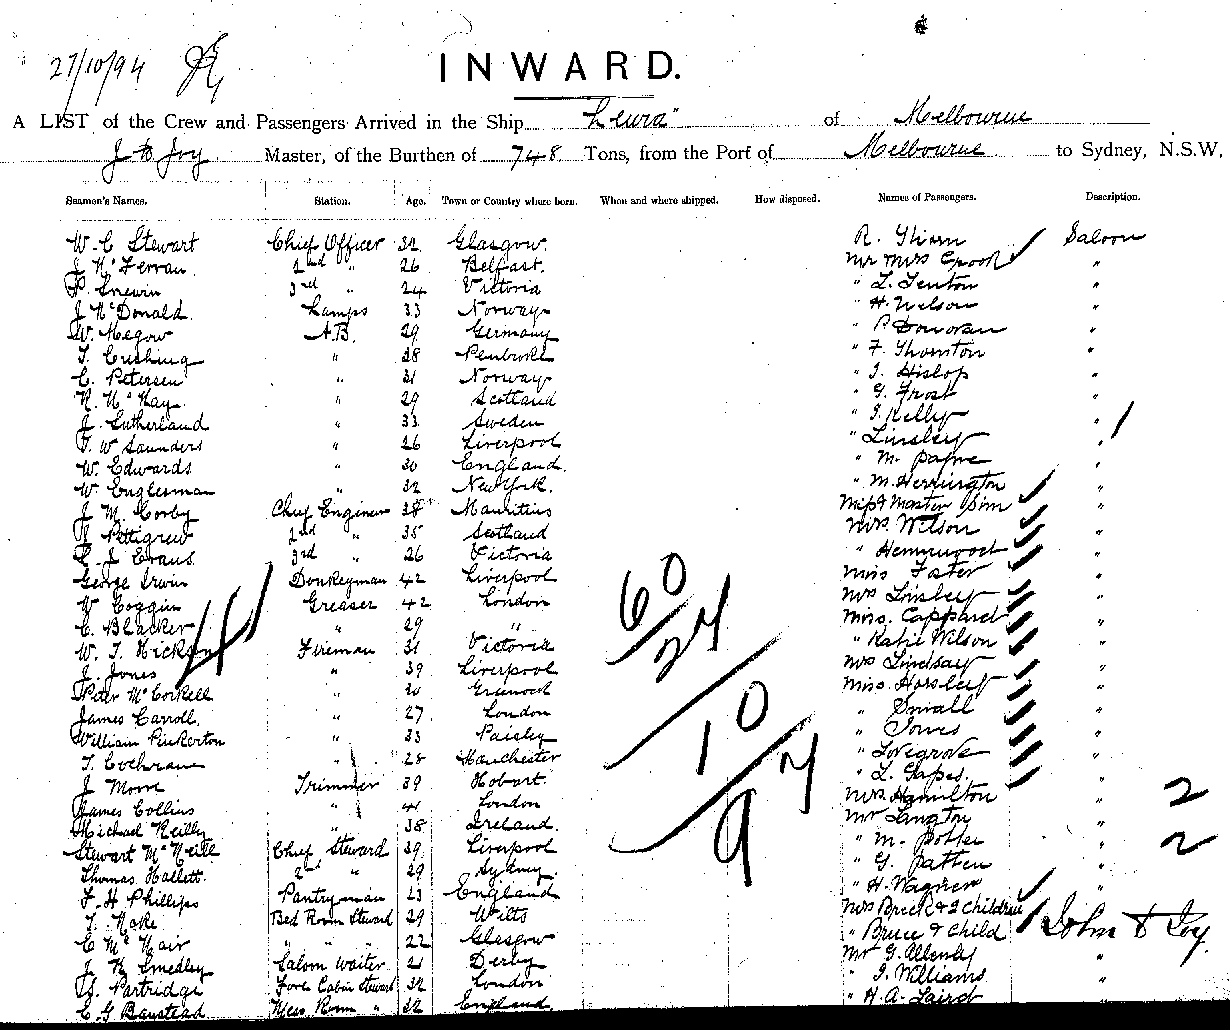 27/10/94
INWARD.
A LIST of the Crew and Passengers Arrived in the Ship "Leura" of Melbourne
Joy Master, of the Burthen of 748 Tons, from the Port of Melbourne to Sydney, N.S.W.
Seamen's Names. Station. Age. Town or Country where born. When and where shipped. How disposed. Names of Passengers. Description.
W. C Stewart Chief Officer 32 Glasgow R. Saloon
J Mc Ferran 2nd " 26 Belfast. Mr Mrs Crook "
3rd " 24 Victoria " L. Fenton "
J McDonald. Lamps 33 Norway " H. Nelson "
W. Megow A.B. 29 Germany " P Donovan "
T. Cushing " 28 Pembroke " F. Thornton "
C. Petersen " 31 Norway " J. Hislop "
Mc Kay " 29 Scotland " G. Frost "
J. Sutherland " 33 Sweden " J. Kelly "
W Saunders " 26 Liverpool " Linsley "
W. Edwards " 30 England. " M. Payne "
W. Euglesman " 32 New York. " M. Herrington "
J. M. Corby Chief Engineer 38 Mauritius Master Sim "
Pettigrew 2nd " 35 Scotland Mrs. Wilson "
J. Evans 3rd " 26 Victoria " "
George Irwin Donkeyman 42 Liverpool Miss Foster "
W Coggin Greaser 42 London Mrs Linsley "
C. Blacker " 29 " Miss. Cappard "
W. T. Hickson Fireman 31 Victoria " Katie Wilson "
J. Jones " 39 Liverpool Mrs Lindsay "
Peter McCorkell " 30 Greenock Miss. Horsley "
James Carroll. " 27 London " Small "
William Pinkerton " 33 Paisley " Jones "
T. Cochrane " 28 Manchester " Lovegrove "
J Moore Trimmer 39 Hobart " L. Gapes. "
James Collins " 41 London Mrs. Hamilton "
Michael Reilly " 38 Ireland. Mr Langton "
Stewart McNeill Chief Steward 39 Liverpool " M. Potter "
Thomas Hallett. 2nd " 29 Sydney " G. Patten "
F. H Phillips Pantryman 23 England " H. Wagner "
T. Hake Bed Room Steward 29 Wilts Mrs & 2 Children "
C McNair " " " 22 Glasgow " Bruce & Child
J. Smedley Saloon Waiter 21 Derby Mr G. Allenby "
Partridge Fore Cabin Steward 32 London " J. Williams "
C. G Banstead Mess Room " 32 England " H. A. Laird "
41
60
24
10
94
2
2
John B Joy